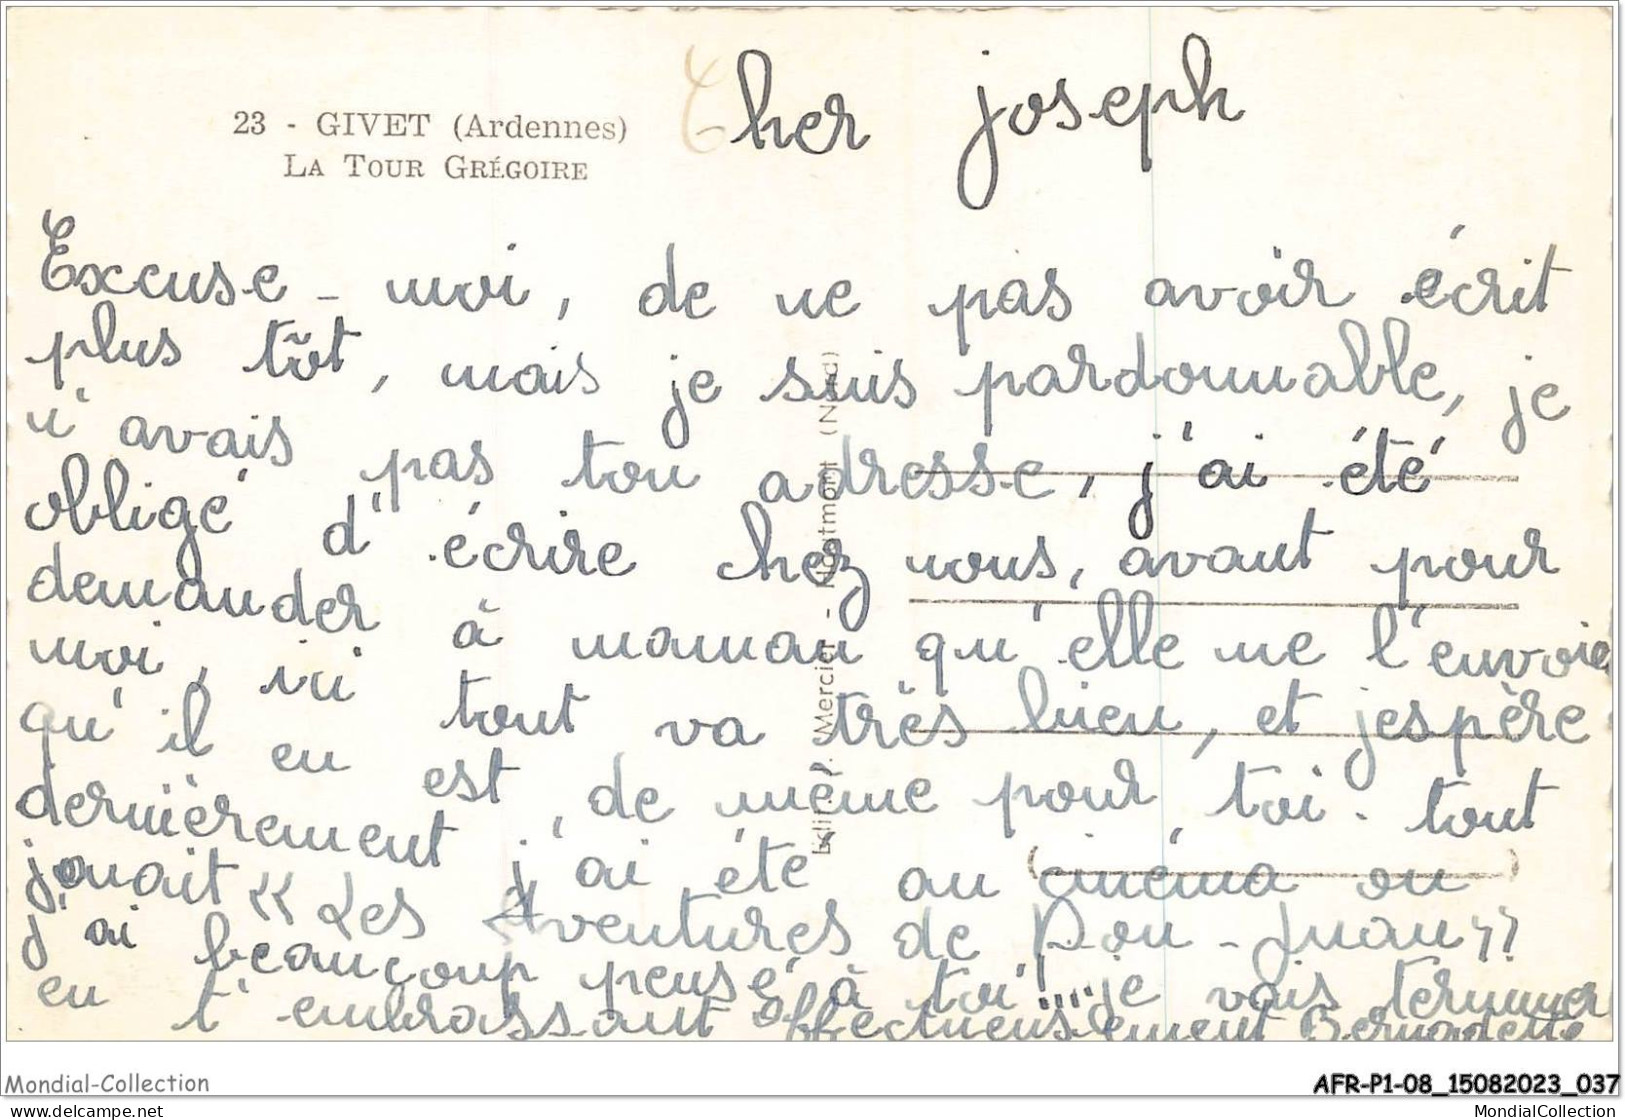 23 - GIVET (Ardennes)
LA TOUR GRÉGOIRE
Cher joseph
Excuse-moi, de ne pas avoir écrit
plus tôt, mais je suis pardonnable, je
n'avais pas ton adresse, j'ai été
obligé d'écrire chez nous, avant pour
demander à maman qu'elle me l'envoie
moi, ici tout va très bien, et jespère
qu'il en est, de même pour toi. tout
dernièrement j'ai été au cinéma on
jouait « Les Aventures de Don-Juan »
j'ai beaucoup pensé à toi!... je vais terminer
en t'embrassant affectueusement Bernadette
Edit. J. Mercier - Hautmont (Nord)
Mondial-Collection
AFR-P1-08_15082023_037
www.delcampe.net
MondialCollection